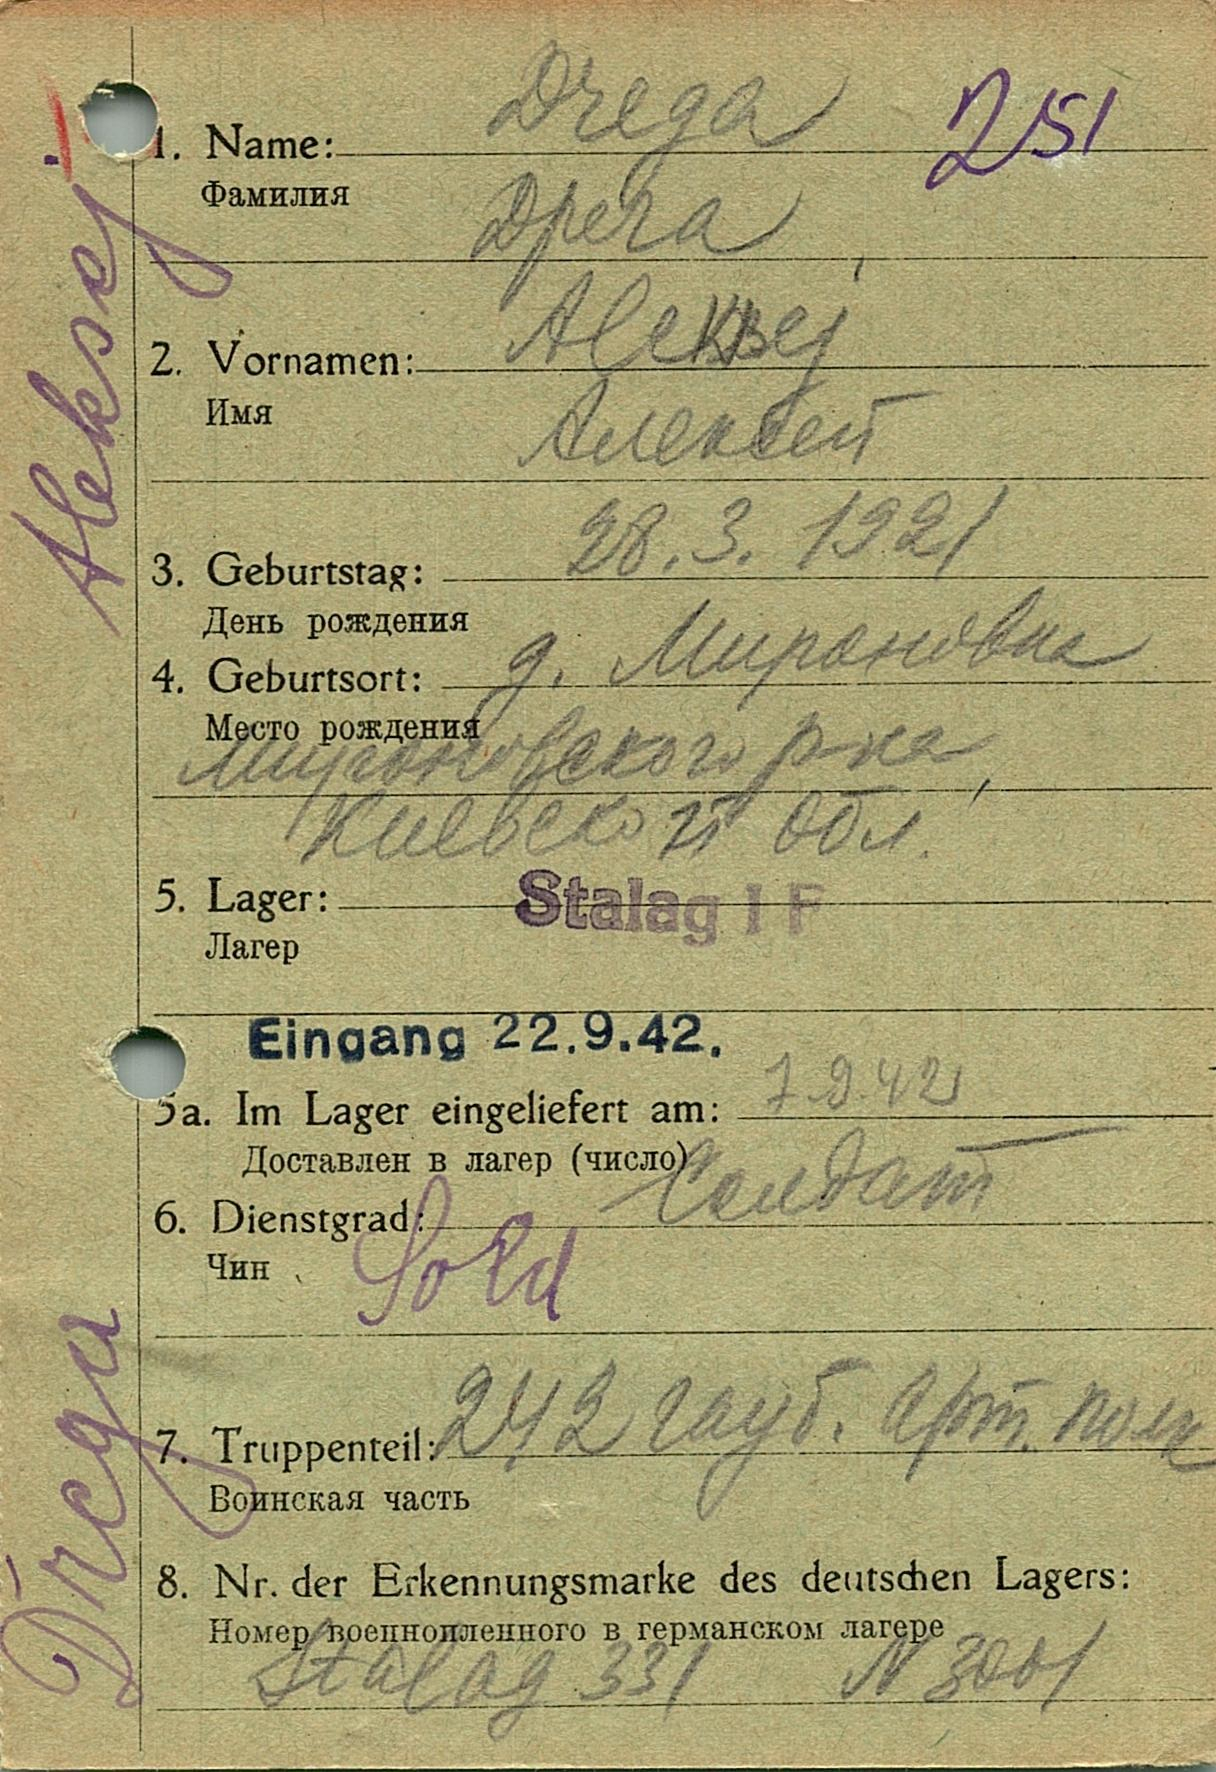 Drega
251
1. Name:
Фамилия
Дрега
Aleksej
2. Vornamen:
Имя
Алексей
28.3.1921
3. Geburtstag:
День рождения
д. Мироновка
4. Geburtsort:
Место рождения
Мироновского р-на,
Киевской обл.
5. Lager: Stalag I F
Лагер
Eingang 22.9.42.
5a. Im Lager eingeliefert am: 7.9.42
Доставлен в лагер (число)
Солдат
6. Dienstgrad:
Чин
Sold
7. Truppenteil: 242 гауб. арт. полк
Воинская часть
8. Nr. der Erkennungsmarke des deutschen Lagers:
Номер военнопленного в германском лагере
Stalag 331 N 3001
Aleksej
Drega